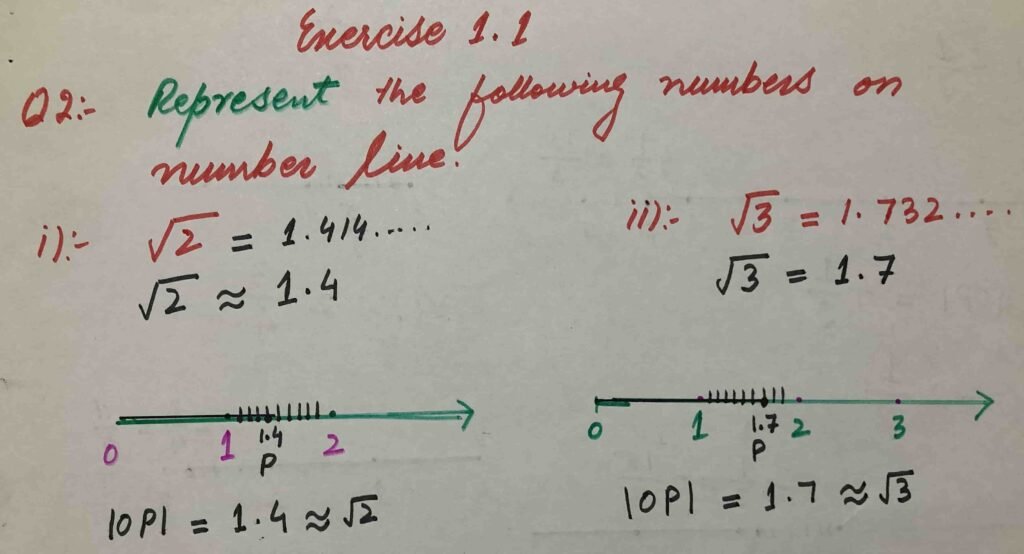 Exercise 1.1
Q2:- Represent the following numbers on
number line.
i):- √2 = 1.414.....
√2 ≈ 1.4
0 1 1.4 2
P
|OP| = 1.4 ≈ √2
ii):- √3 = 1.732....
√3 = 1.7
0 1 1.7 2 3
P
|OP| = 1.7 ≈ √3